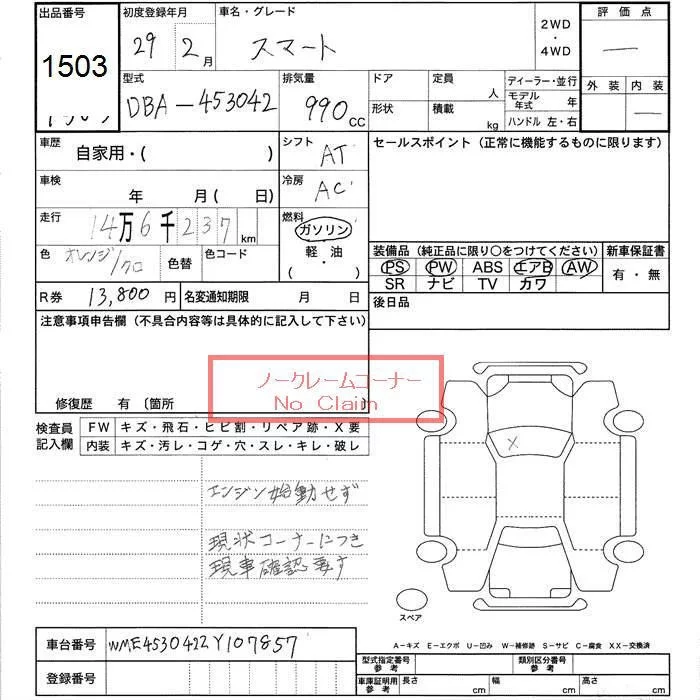 出品番号
1503
初度登録年月
29年 2月
車名・グレード
スマート
2WD
・
4WD
評価点
—
外装 内装
—
型式
DBA-453042
排気量
990cc
ドア
形状
定員 人
積載 kg
ディーラー・並行
モデル年式 年
ハンドル 左・右
車歴
自家用・( )
シフト
AT
セールスポイント (正常に機能するものに限ります)
車検
年 月( 日)
冷房
AC
走行
14万6千237km
燃料
ガソリン
軽・油
(・)
色
オレンジ/クロ
色替
色コード
装備品 (純正品に限り○をつけてください)
PS PW ABS エアB AW
SR ナビ TV カワ
新車保証書
有・無
R券 13,800円
名変通知期限 月 日
後日品
注意事項申告欄 (不具合内容等は具体的に記入して下さい)
ノークレームコーナー
No Claim
修復歴 有 〔箇所 〕
検査員記入欄
FW キズ・飛石・ヒビ割・リペア跡・X要
内装 キズ・汚レ・コゲ・穴・スレ・キレ・破レ
X
エンジン始動せず
現状コーナーにつき
現車確認要す
スペア
A-キズ E-エクボ U-凹み W-補修跡 S-サビ C-腐食 XX-交換済
車台番号
WME4530422Y107857
登録番号
型式指定番号 参考
類別区分番号 参考
車庫証明用 参考
長さ cm 幅 cm 高さ cm